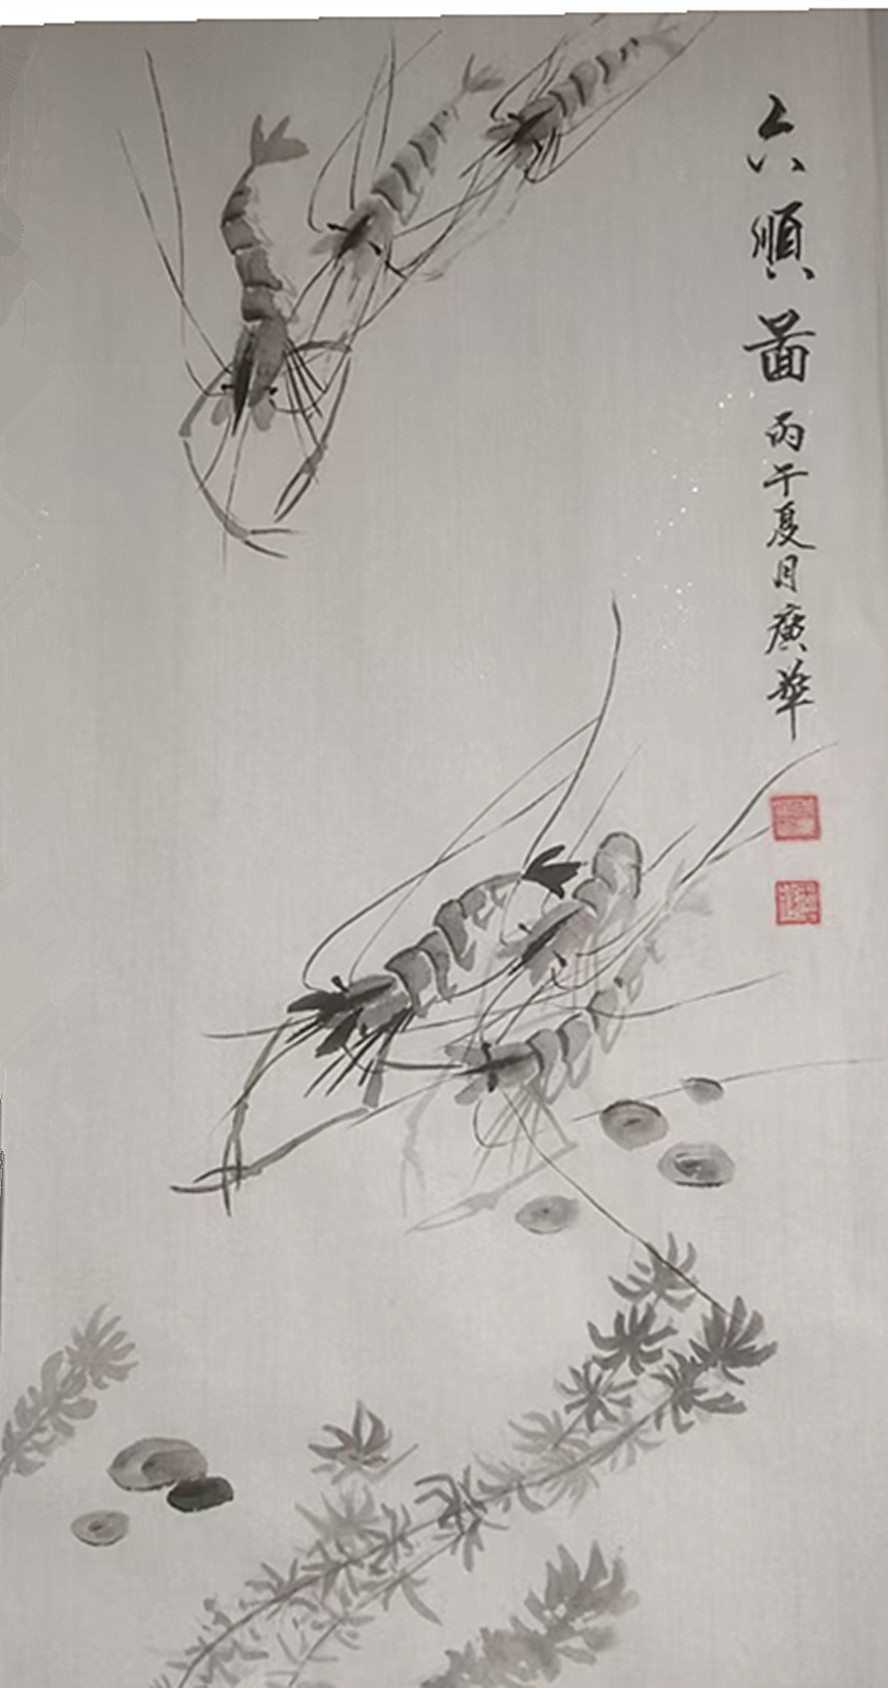 六順啚丙午夏月廣華